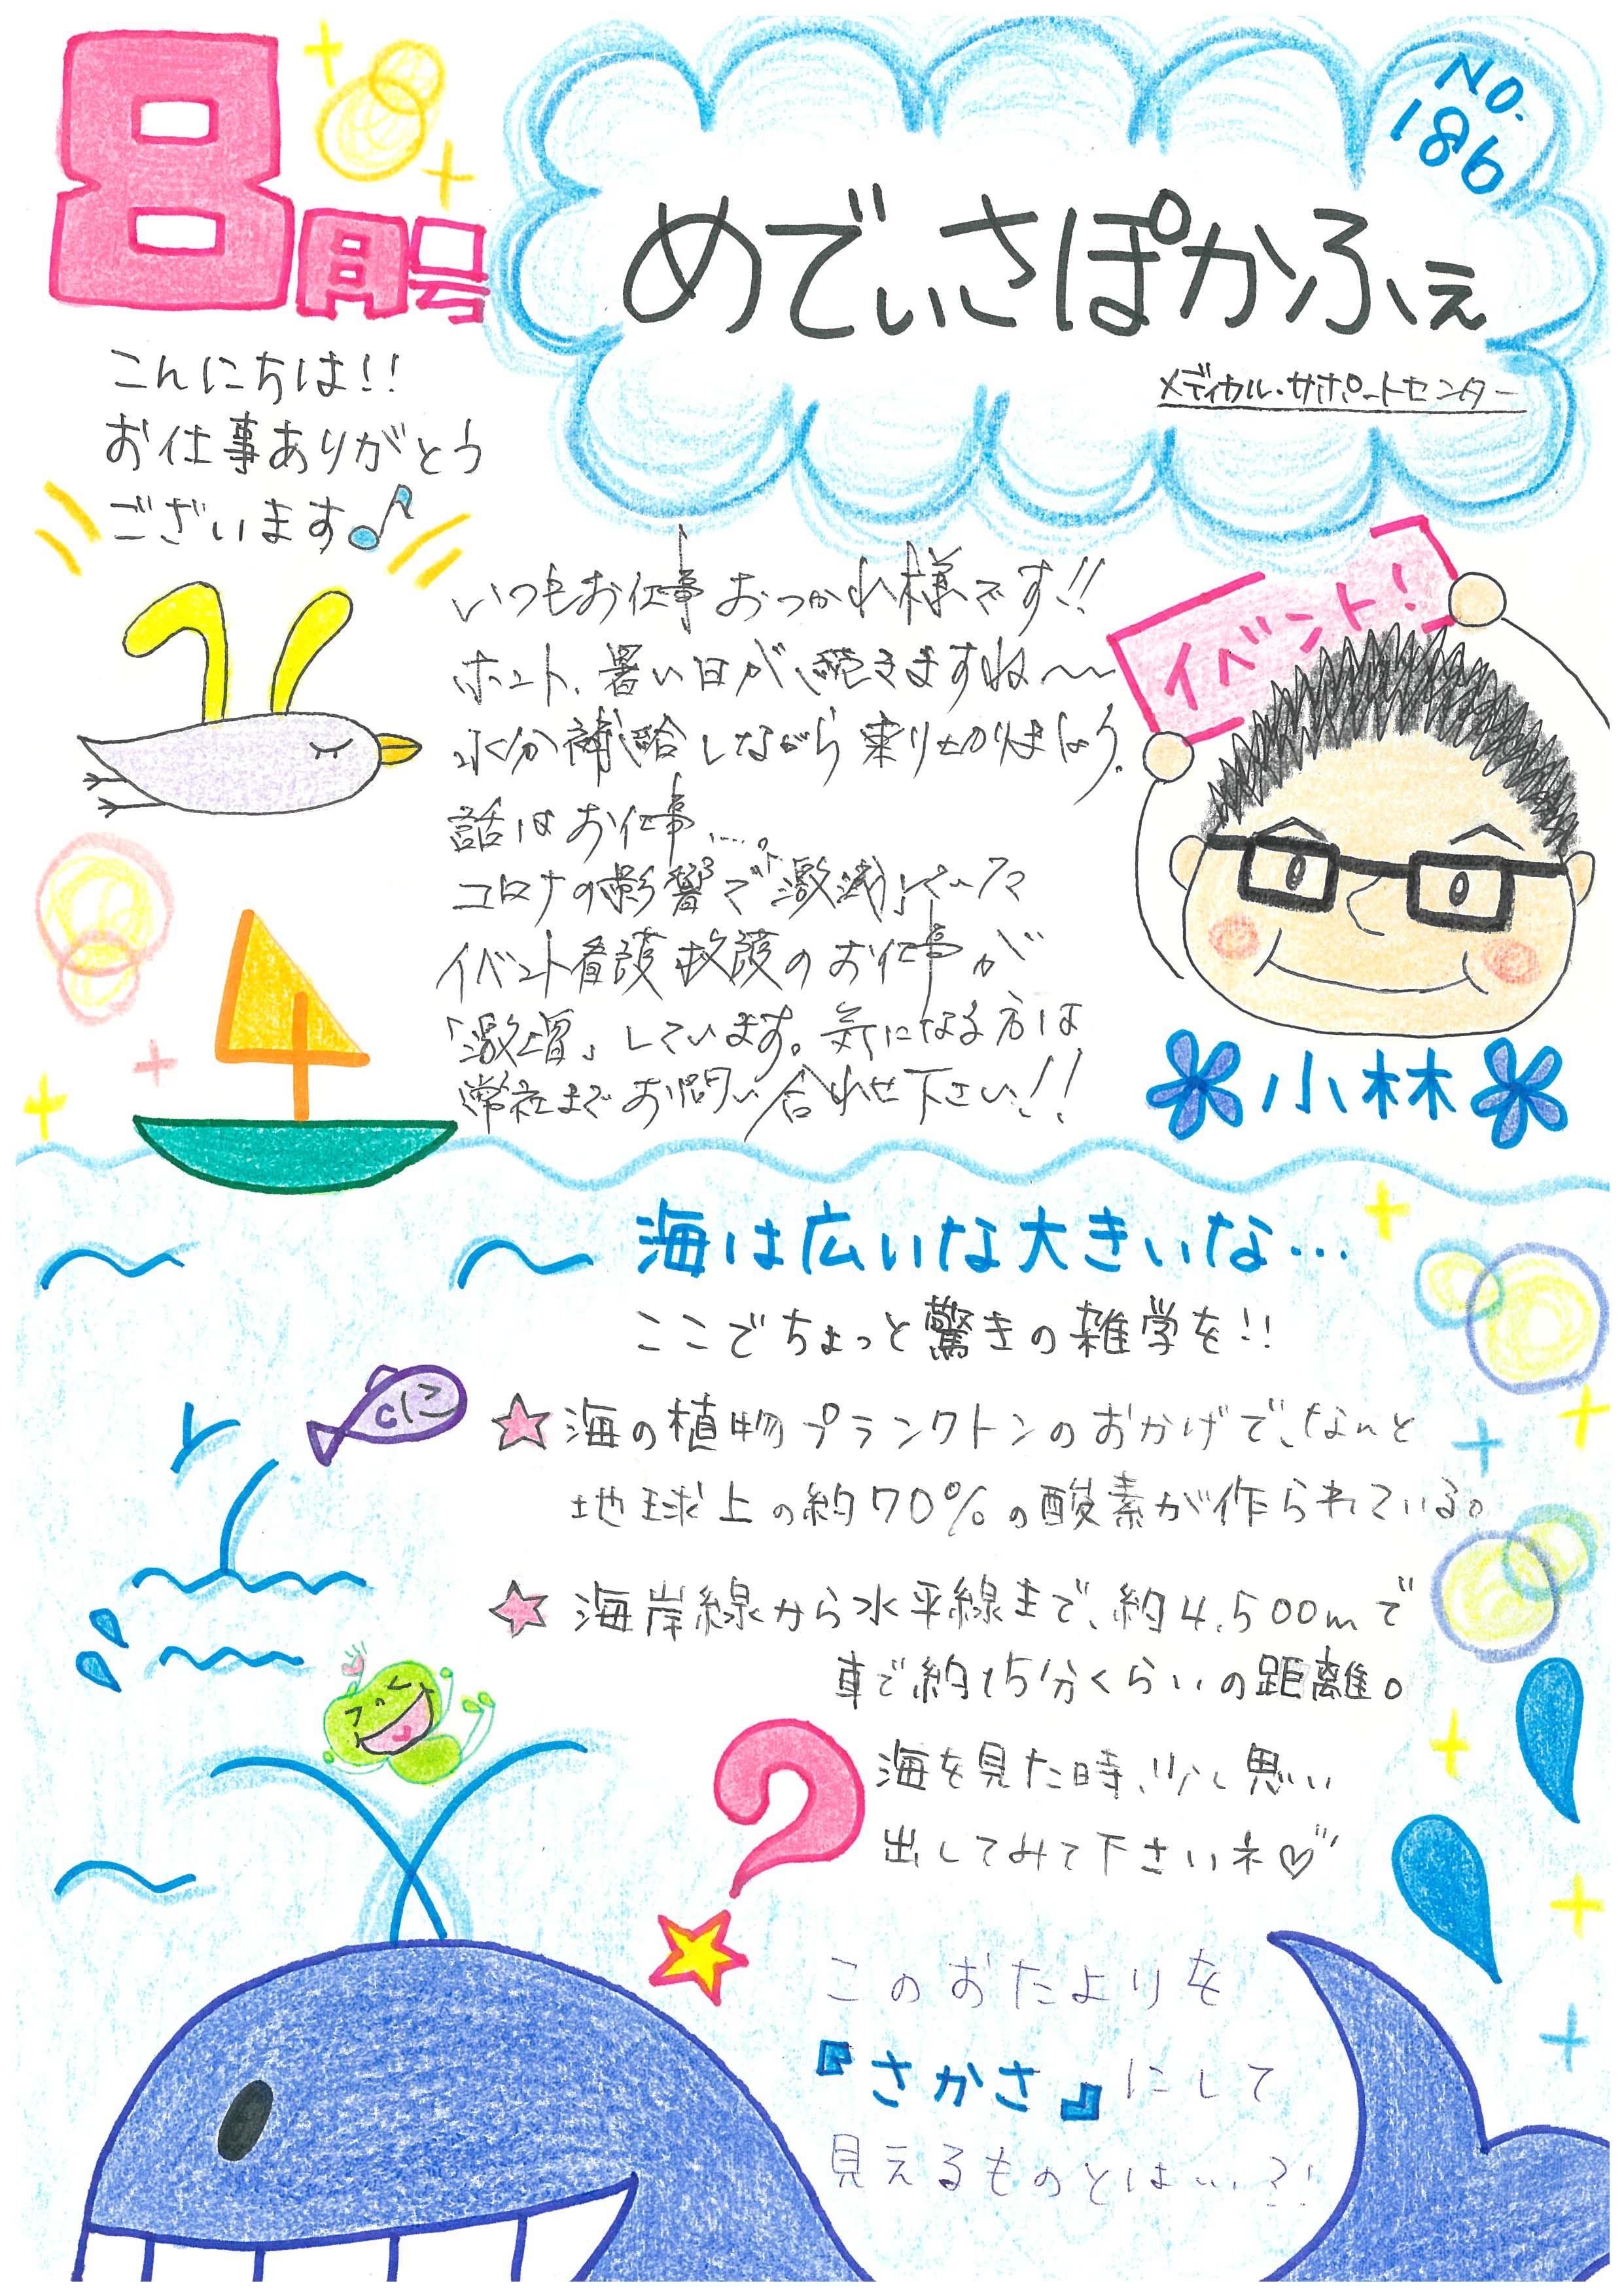 8月号
No.
186
めでぃさぽかふぇ
メディカル・サポートセンター
こんにちは!!
お仕事ありがとう
ございます♪
いつもお仕事おつかれ様です!!
ホント、暑い日が続きますね〜〜
水分補給しながら乗り切りましょう。
話はお仕事…。
コロナの影響で「激減」していた
イベント看護救護のお仕事が
「激増」しています。気になる方は
弊社までお問い合わせ下さい!!
イベント!
小林
海は広いな大きいな…
ここでちょっと驚きの雑学を!!
☆海の植物プランクトンのおかげで、なんと
地球上の約70%の酸素が作られている。
☆海岸線から水平線まで、約4,500mで
車で約15分くらいの距離。
海を見た時、少し思い
出してみて下さいネ♡
?
このおたよりを
『さかさ』にして
見えるものとは…?!